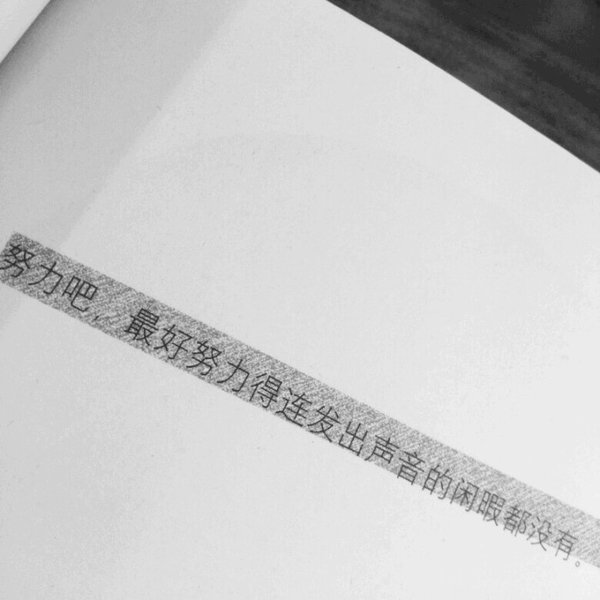 努力吧，最好努力得连发出声音的闲暇都没有。